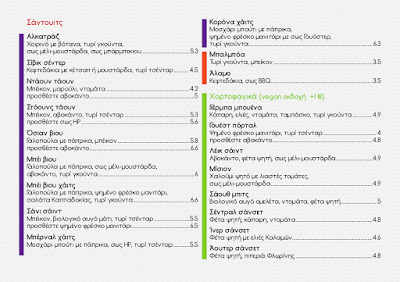 Σάντουιτς
Αλκατράζ
Χοιρινό με βότανα, τυρί γκούντα,
σως μέλι-μουστάρδα, σως μπάρμπεκιου 5.3
Σίβικ σέντερ
Κεφτεδάκια με κέτσαπ ή μουστάρδα, τυρί τσένταρ 4.5
Ντάουν τάουν
Μπέικον, μαρούλι, ντομάτα 4.2
προσθέστε αβοκάντο 5
Στόουνς τάουν
Μπέικον, αβοκάντο, τυρί τσένταρ 5.3
προσθέστε σως HP 5.6
Όσιαν βιου
Γαλοπούλα με πάπρικα, μπέικον 5.8
προσθέστε αβοκάντο 6.6
Μπέι βιου
Γαλοπούλα με πάπρικα, σως μέλι-μουστάρδα,
αβοκάντο, τυρί γκούντα 6
Μπέι βιου χάιτς
Γαλοπούλα με πάπρικα, ψημένο φρέσκο μανιτάρι,
σαλάτα Καππαδοκίας, τυρί γκούντα 6.6
Σάνι σάιντ
Μπέικον, βιολογικό αυγό μάτι, τυρί τσένταρ 5.5
προσθέστε ψημένο φρέσκο μανιτάρι 6.5
Μπέρναλ χάιτς
Μοσχάρι μπούτι με πάπρικα, σως HP, τυρί τσένταρ 5.5
Κορόνα χάιτς
Μοσχάρι μπούτι με πάπρικα,
ψημένο φρέσκο μανιτάρι με σως Γουόστερ,
τυρί γκούντα 6.3
Μπαλμπόα
Τυρί γκούντα, μπέικον 3.5
Άλαμο
Κεφτεδάκια, σως BBQ 3.5
Χορτοφαγικά (vegan εκδοχή +1€)
Γέρμπα μπουένα
Κάπαρη, ελιές, ντομάτα, ταμπάσκο, τυρί γκούντα 4.9
Γουέστ πόρταλ
Ψημένο φρέσκο μανιτάρι, τυρί τσένταρ 4
προσθέστε αβοκάντο 4.8
Λέικ σάιντ
Αβοκάντο, φέτα ψητή, σως μέλι-μουστάρδα 4.9
Μίσιον
Χαλούμι ψητό με λιαστές τομάτες,
σως μέλι-μουστάρδα 4.9
Σάουθ μπιτς
Βιολογικό αυγό ομελέτα, ντομάτα, φέτα ψητή 5
Σέντραλ σάνσετ
Φέτα ψητή, κάπαρη, ντομάτα 4.8
Ίνερ σάνσετ
Φέτα ψητή με ελιές Καλαμών 4.6
Άουτερ σάνσετ
Φέτα ψητή, πιπεριά Φλωρίνης 4.8